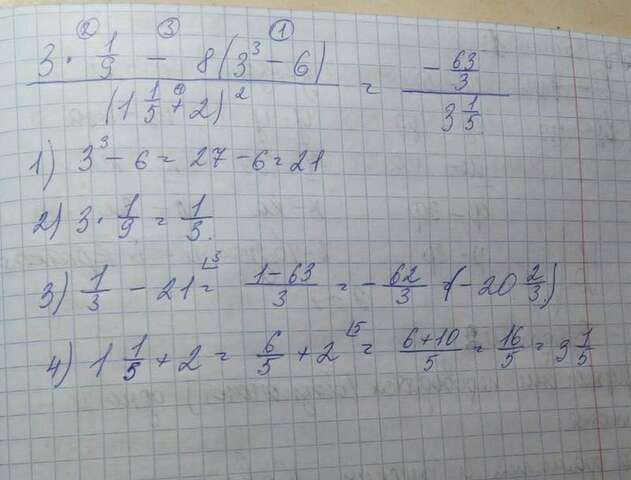 ② ③ ①
3 · 1/9 − 8(3³ − 6) / (1 1/5 + 2)² = − 63/3 / 3 1/5
1) 3³ − 6 = 27 − 6 = 21
2) 3 · 1/9 = 1/3.
3) 1/3 − 21 = 1 − 63 / 3 = − 62/3 = (− 20 2/3)
4) 1 1/5 + 2 = 6/5 + 2 = 6 + 10 / 5 = 16/5 = 3 1/5